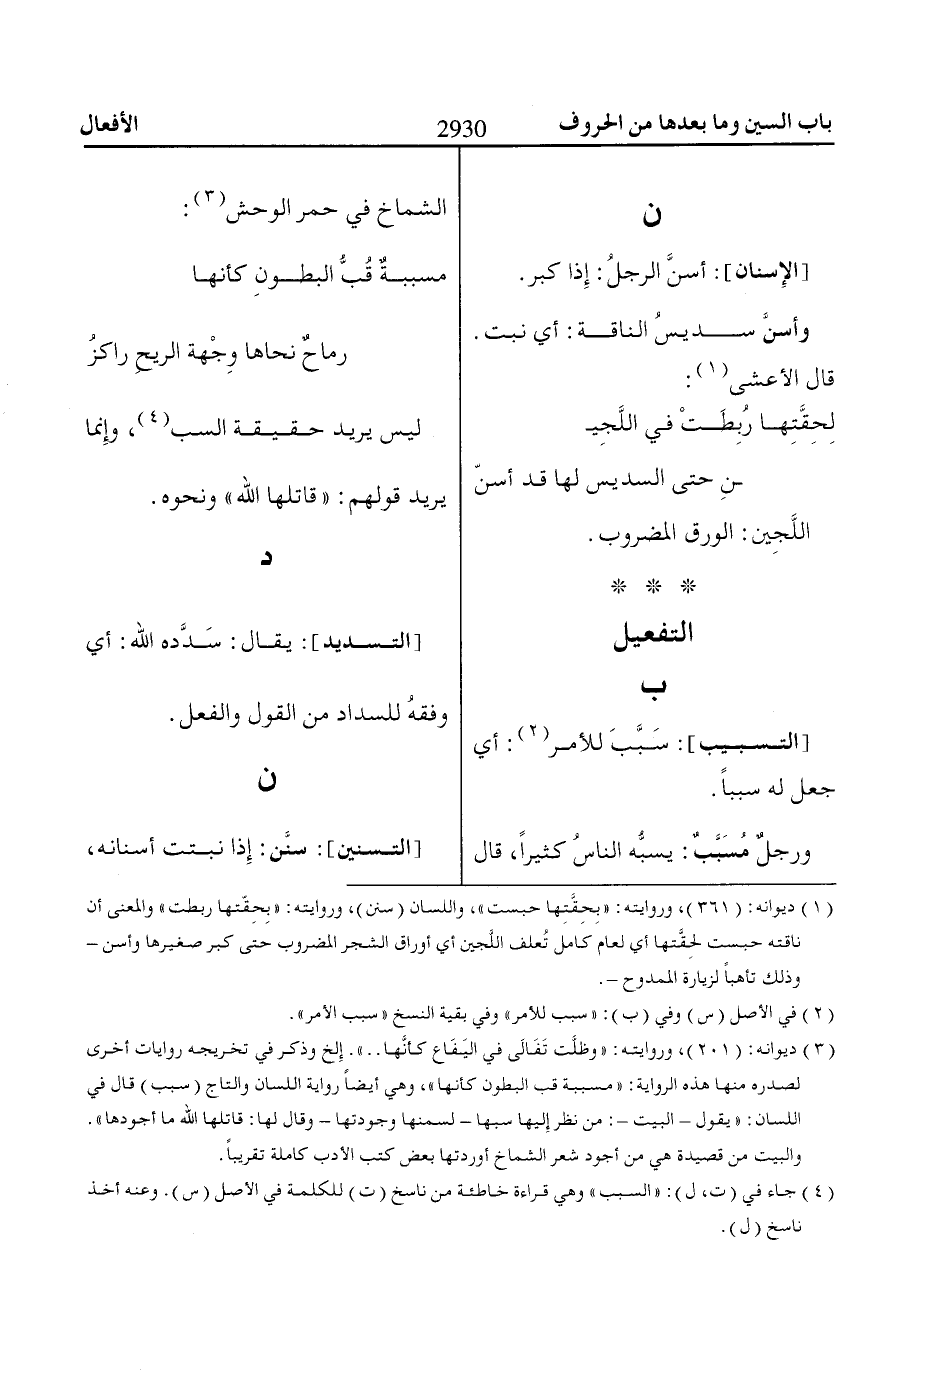 باب السين وما بعدها من الحروف 2930 الأفعال
ن
[الإسنان]: أسنَّ الرجلُ: إذا كبر.
وأسنَّ سديسُ الناقة: أي نبت.
قال الأعشى(١):
لحِقَّتِها رُبطَتْ في اللَّجيـ
ـنِ حتى السديس لها قد أسنّ
اللَّجِين: الورق المضروب.
* * *
التفعيل
ب
[التسبيب]: سَبَّبَ للأمر(٢): أي
جعل له سبباً.
ورجلٌ مُسَبَّبٌ: يسبُّه الناسُ كثيراً، قال
الشماخ في حمر الوحش(٣):
مسببةٌ قُبُّ البطونِ كأنها
رماحٌ نحاها وِجْهة الريحِ راكزُ
ليس يريد حقيقة السب(٤)، وإنما
يريد قولهم: «قاتلها الله» ونحوه.
د
[التسديد]: يقال: سَدَّده الله: أي
وفقهُ للسداد من القول والفعل.
ن
[التسنين]: سنَّن: إذا نبتت أسنانه،
(١) ديوانه: (٣٦١)، وروايته: «بِحقَّتِها حبست»، واللسان (سنن)، وروايته: «بِحقّتِها ربطت» والمعنى أن
ناقته حبست لحِقَّتِها أي لعام كامل تُعلف اللَّجِين أي أوراق الشجر المضروب حتى كبر صغيرها وأسن –
وذلك تأهباً لزيارة الممدوح –.
(٢) في الأصل (س) وفي (ب): «سبب للأمر» وفي بقية النسخ «سبب الأمر».
(٣) ديوانه: (٢٠١)، وروايته: «وظلَّت تَفَالَى في اليَفَاع كأنَّها..». إلخ وذكر في تخريجه روايات أخرى
لصدره منها هذه الرواية: «مسببة قب البطون كأنها»، وهي أيضاً رواية اللسان والتاج (سبب) قال في
اللسان: «يقول – البيت –: من نظر إليها سبها – لسمنها وجودتها – وقال لها: قاتلها الله ما أجودها».
والبيت من قصيدة هي من أجود شعر الشماخ أوردتها بعض كتب الأدب كاملة تقريباً.
(٤) جاء في (ت، ل): «السبب» وهي قراءة خاطئة من ناسخ (ت) للكلمة في الأصل (س). وعنه أخذ
ناسخ (ل).